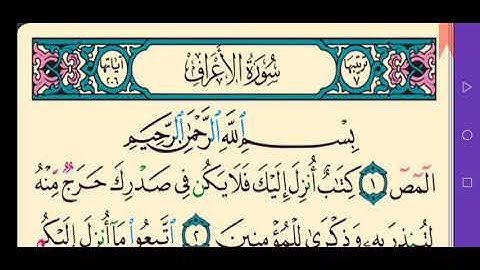 ترتيبها ٧ سُورَةُ الأَعْرَافِ آياتها ٢٠٦
بِسْمِ ٱللَّهِ ٱلرَّحْمَٰنِ ٱلرَّحِيمِ
الٓمٓصٓ ١ كِتَٰبٌ أُنزِلَ إِلَيْكَ فَلَا يَكُن فِى صَدْرِكَ حَرَجٌ مِّنْهُ
لِتُنذِرَ بِهِۦ وَذِكْرَىٰ لِلْمُؤْمِنِينَ ٢ ٱتَّبِعُوا۟ مَآ أُنزِلَ إِلَيْكُم